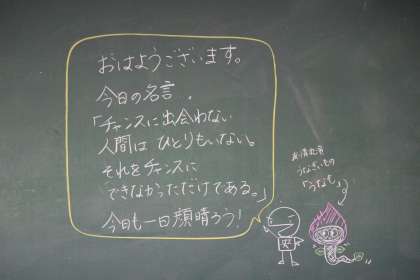 おはようございます。
今日の名言．
「チャンスに出会わない
人間はひとりもいない。
それをチャンスに
できなかっただけである。」
今日も一日顔晴ろう!
「うなも」